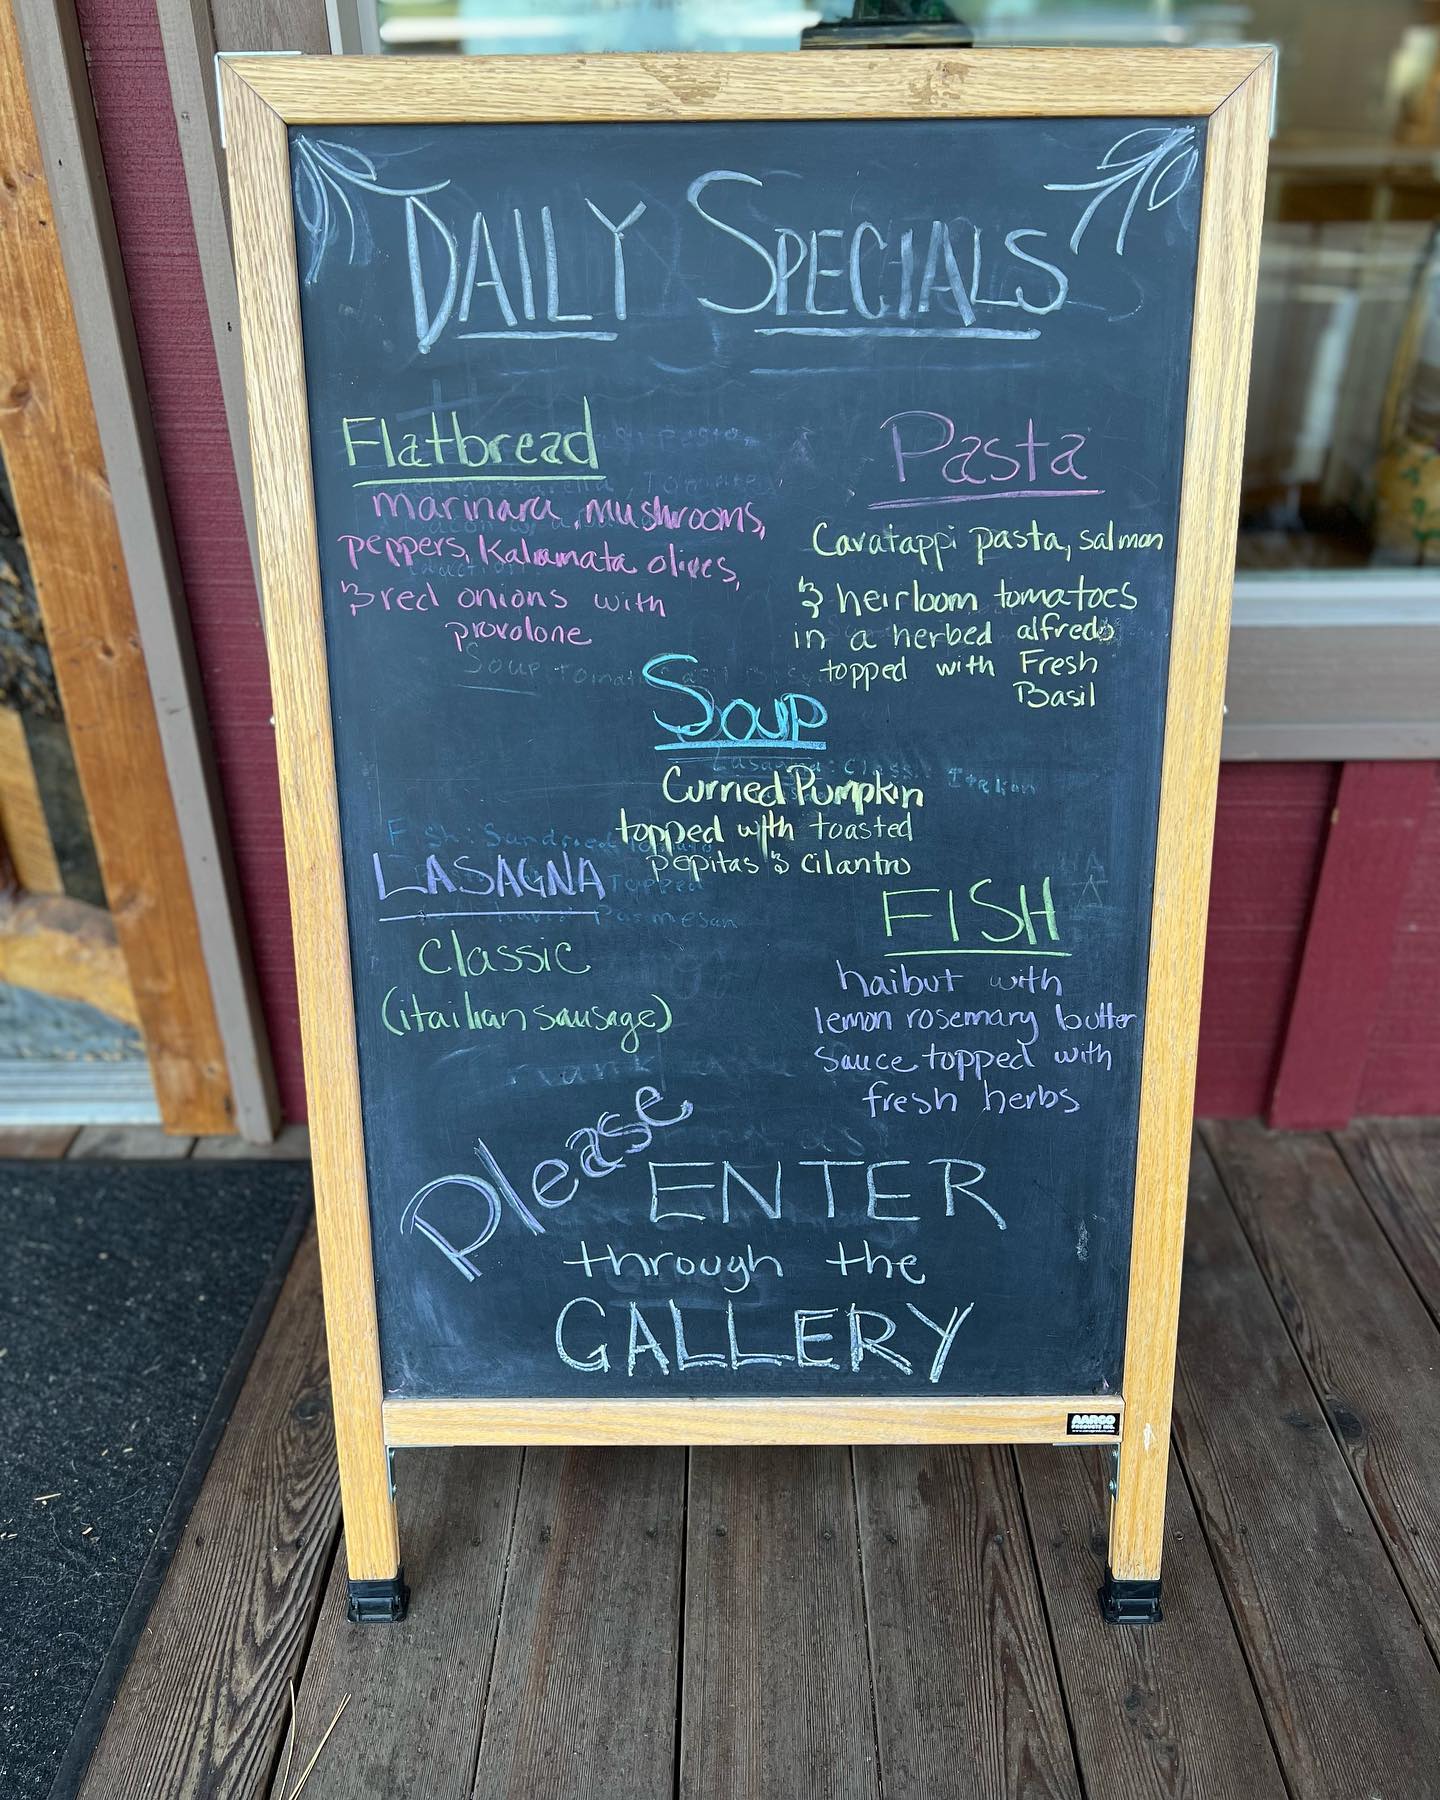 DAILY SPECIALS
Flatbread
Marinara, mushrooms,
peppers, Kalamata olives,
& red onions with
provolone
Pasta
Cavatappi pasta, salmon
& heirloom tomatoes
in a herbed alfredo
topped with Fresh
Basil
Soup
Curried Pumpkin
topped with toasted
pepitas & cilantro
LASAGNA
Classic
(itailian sausage)
FISH
haibut with
lemon rosemary butter
sauce topped with
fresh herbs
Please
ENTER
through the
GALLERY
AARCO
PRODUCTS INC.